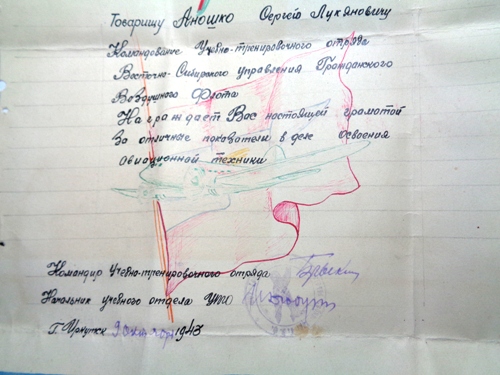 Товарищу Аношко Сергей Лукяновичу
Командование Учебно-тренировочного отряда
Восточно-Сибирского управления Гражданского
Воздушного Флота
Награждает Вас настоящей грамотой
За отличные показатели в деле освоения
авиационной техники
Командир Учебно-тренировочного отряда
Начальник учебного отдела УТО
Г. Иркутск 1943